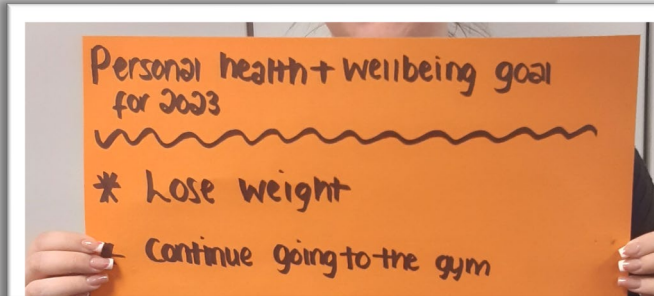 Personal health + wellbeing goal
for 2023
* Lose weight
* Continue going to the gym